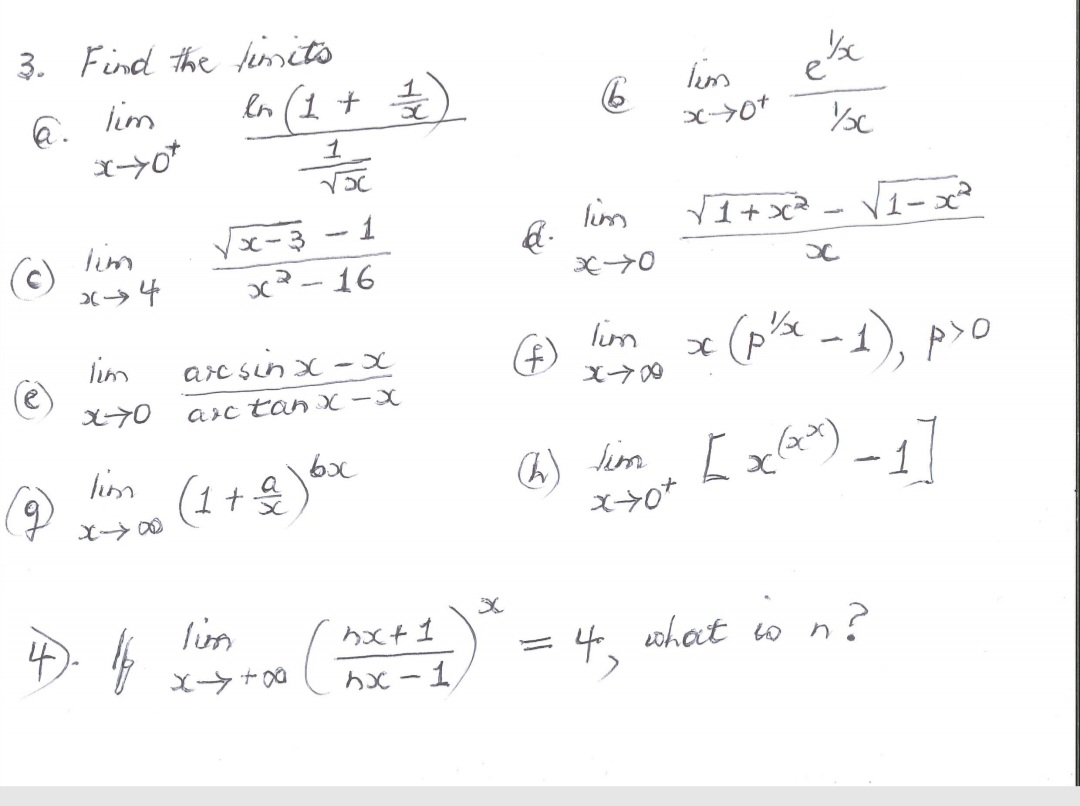 3. Find the limits
ⓐ. lim x→0⁺ ln(1 + 1/x) / (1/√x)
ⓑ lim x→0⁺ e^(1/x) / (1/x)
ⓒ lim x→4 (√(x-3) - 1) / (x² - 16)
ⓓ. lim x→0 (√(1+x²) - √(1-x²)) / x
ⓔ lim x→0 (arcsin x - x) / (arc tan x - x)
ⓕ lim x→∞ x(p^(1/x) - 1), p>0
ⓖ lim x→∞ (1 + a/x)^(bx)
ⓗ lim x→0⁺ [x^(x^x) - 1]
4). If lim x→+∞ ((nx+1)/(nx-1))^x = 4, what is n?